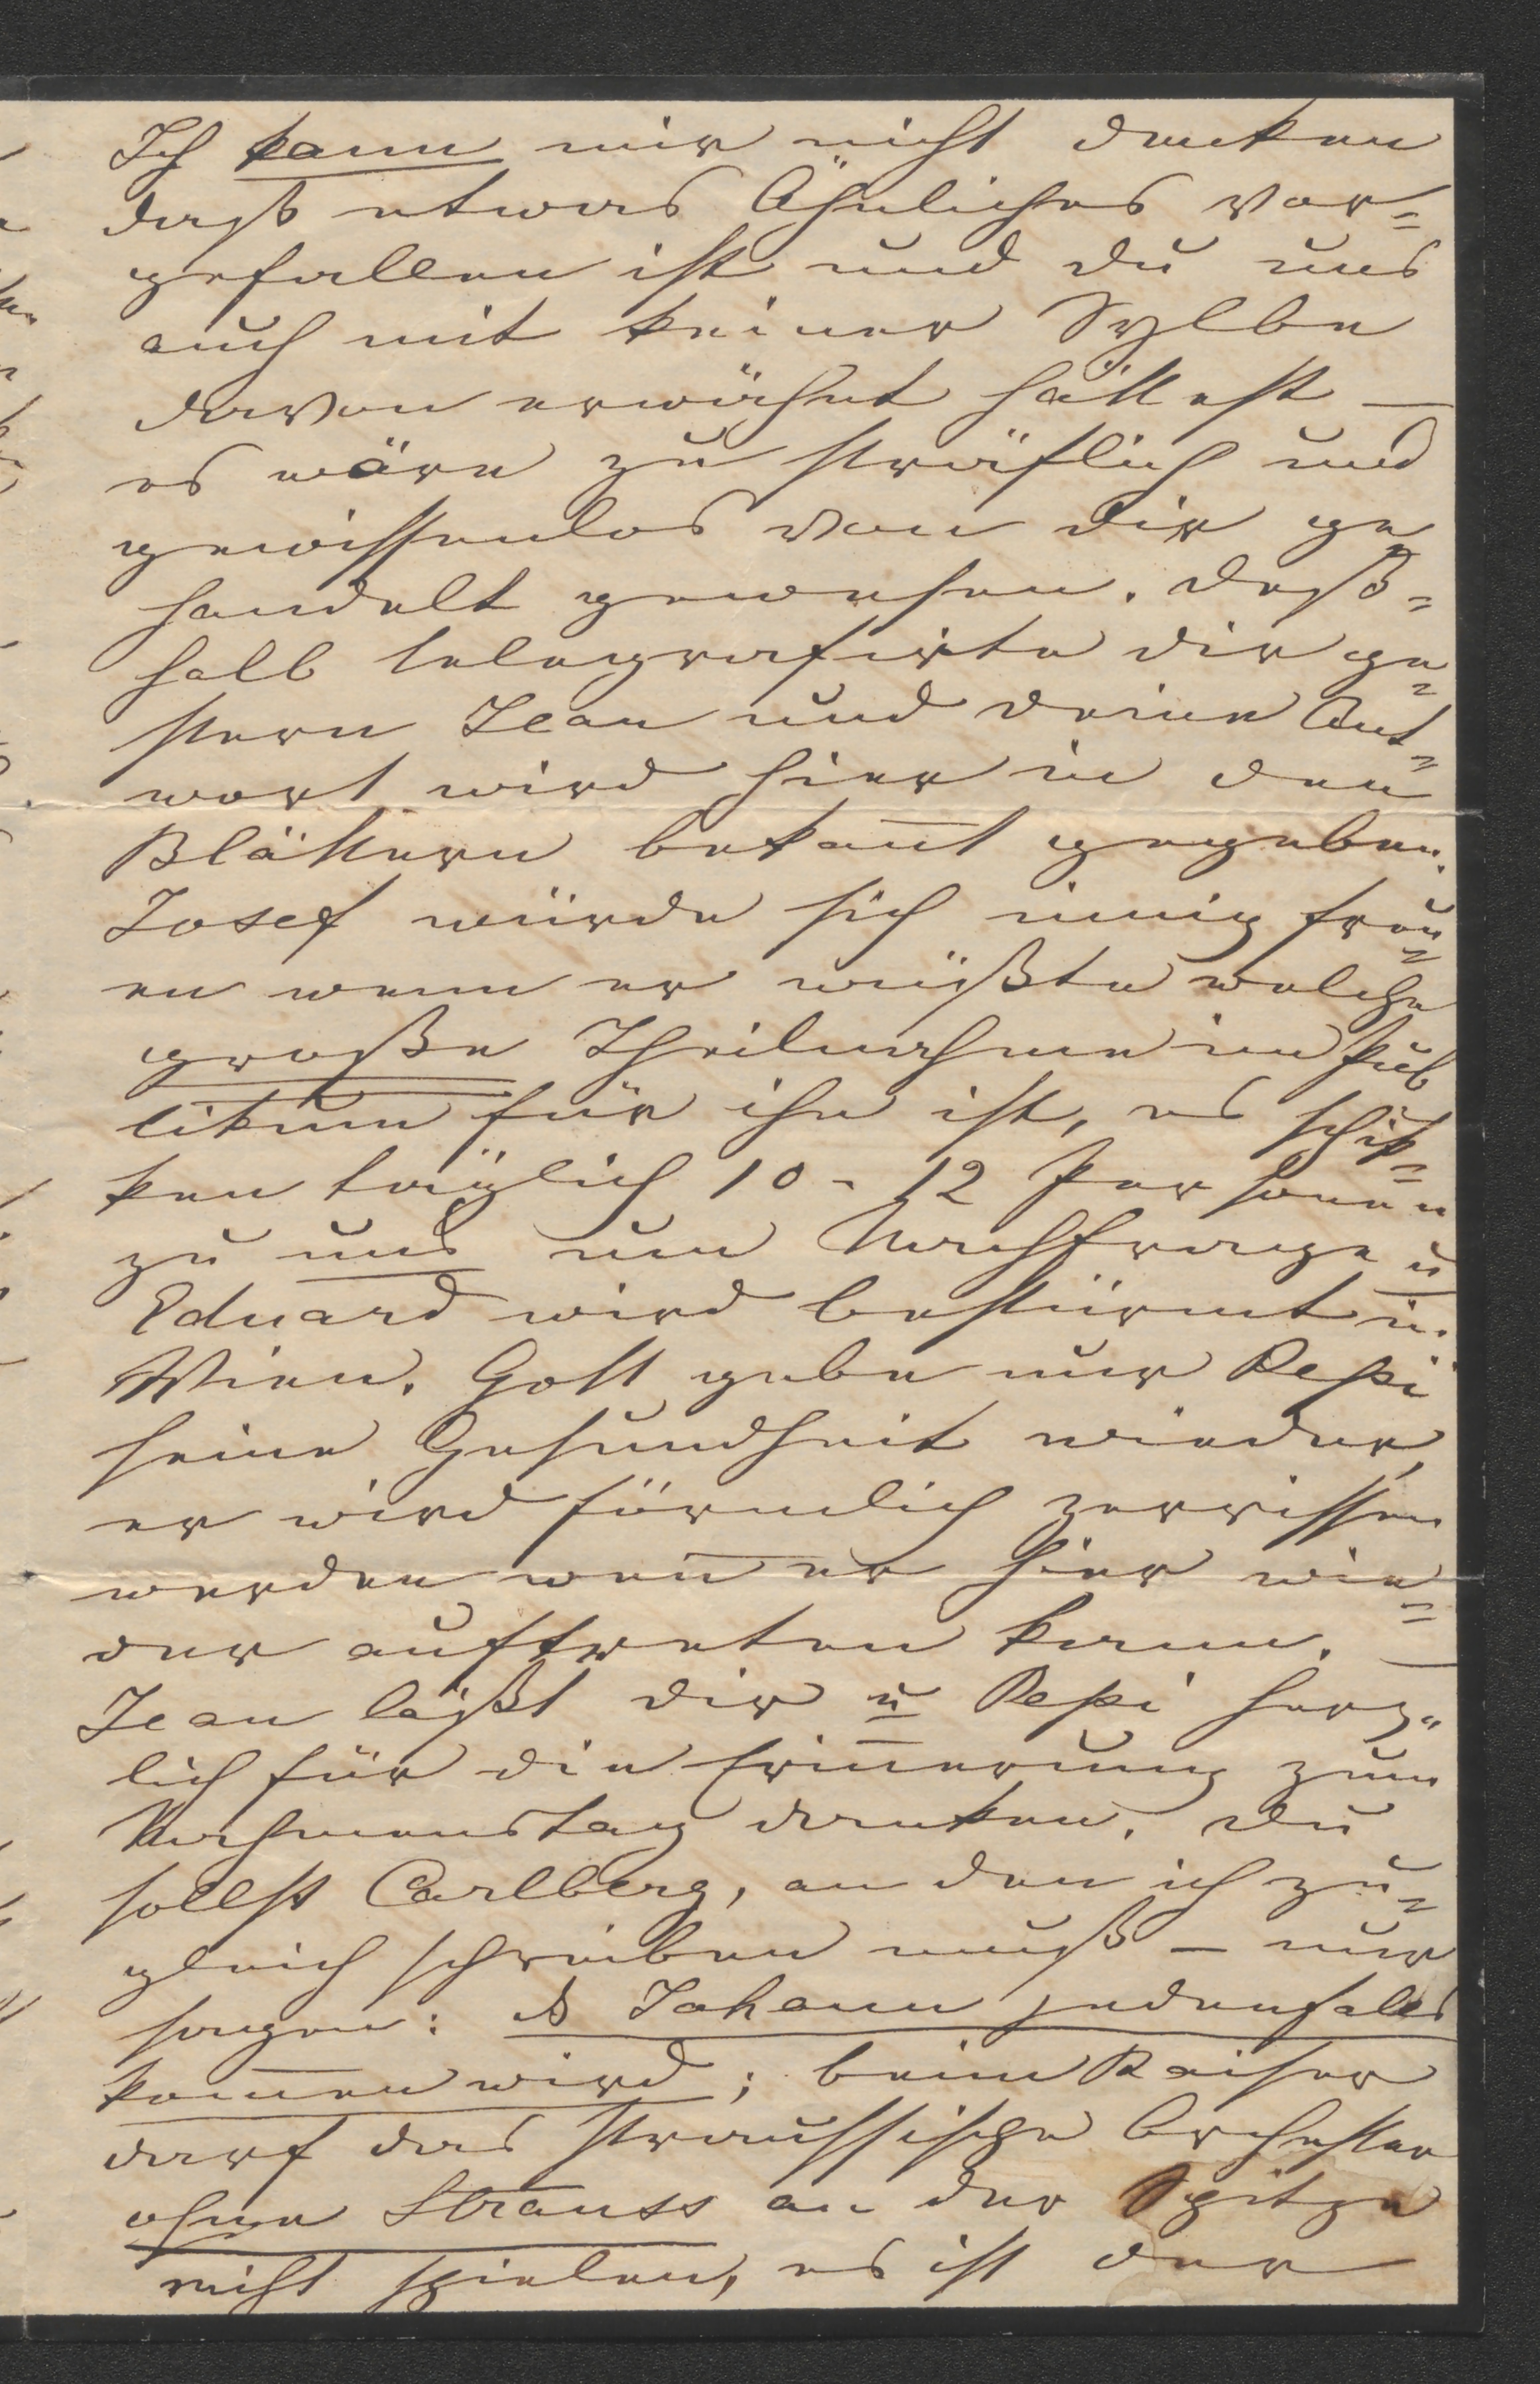 Ich kann mir nicht denken
daß etwas Ähnliches vor=
gefallen ist und du uns
auch mit keiner Sylbe
davon erwähnt hättest —
es wäre zu sträflich und
gewissenlos von dir ge
handelt gewesen. Deß=
halb telegrafirte dir ge=
stern Jean und deine Ant=
wort wird hier in den
Blättern bekan̅t gegeben.
Josef würde sich innig freu=
en wenn er wüßte welche
große Theilnahme im Pub
likum für ihn ist, es schik=
ken täglich 10 - 12 Personen
zu uns um Nachfrage u
Eduard wird bestürmt in
Wien. Gott gebe nur Pepi
seine Gesundheit wieder,
er wird förmlich zerrissen
werden wen̅ er hier wie=
der auftreten kann. —
Jean läßt dir u Pepi herz=
lich für die Erin̅erung zum
Nahmenstag danken. Du
sollst Carlberg, an den ich zu=
gleich schreiben muß — nur
sagen: ds Johann jedenfalls
kom̅en wird; beim Kaiser
darf das Straussische Orchester
ohne Strauss an der Spitze
nicht spielen, es ist der